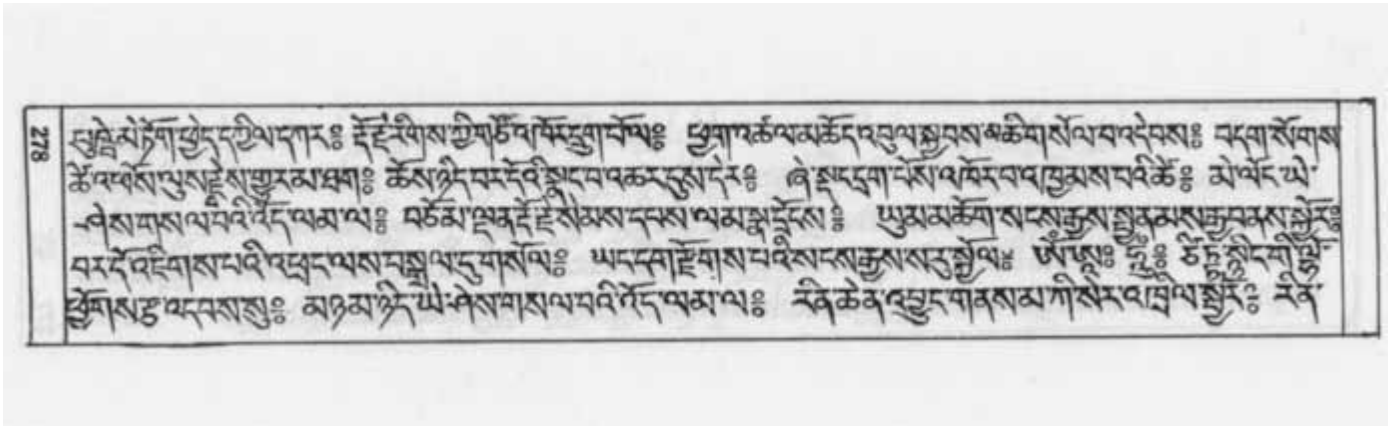 པུཎྜེ་མེ་ཏོག་ཕྱེད་དཀྱིལ་དཀར༔ རྡོ་རྗེ་རིགས་ཀྱི་གཙོ་འཁོར་དྲུག་པོ་ལ༔ ཕྱག་འཚལ་མཆོད་འབུལ་སྐྱབས་མཆི་གསོལ་བ་འདེབས༔ བདག་སོགས་
ཚེ་འཕོས་ལུས་རྗེས་གྱུར་མ་ཐག༔ ཆོས་ཉིད་བར་དོའི་སྣང་བ་འཆར་དུས་དེར༔ ཞེ་སྡང་དྲག་པོས་འཁོར་བ་འཁྱམས་པའི་ཚེ༔ མེ་ལོང་ཡེ་
ཤེས་གསལ་བའི་འོད་ལམ་ལ༔ བཅོམ་ལྡན་རྡོ་རྗེ་སེམས་དཔས་ལམ་སྣ་དྲོངས༔ ཡུམ་མཆོག་སངས་རྒྱས་སྤྱན་མས་རྒྱབ་ནས་སྐྱོར༔
བར་དོ་འཇིགས་པའི་འཕྲང་ལས་བསྒྲལ་དུ་གསོལ༔ ཡང་དག་རྫོགས་པའི་སངས་རྒྱས་ས་རུ་སྐྱོལ༔ ཨོཾ་ཨཱཿ ཧཱུྃ༔
ཕྱོགས་ཟུ་འདབས་སུ༔ མཉམ་ཉིད་ཡེ་ཤེས་གསལ་བའི་འོད་ལམ་ལ༔ རིན་ཆེན་འབྱུང་གནས་མཱ་ཀི་སེར་འཁྲིལ་སྦྱོར༔ རིན་